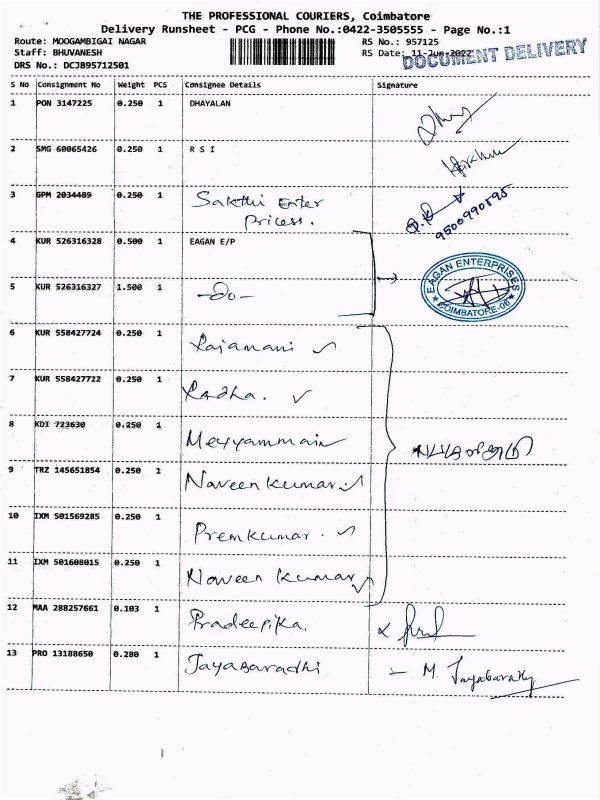 THE PROFESSIONAL COURIERS, Coimbatore
Delivery Runsheet - PCG - Phone No.:0422-3505555 - Page No.:1
Route: MOOGAMBIGAI NAGAR RS No.: 957125
Staff: BHUVANESH RS Date: 11-Jun-2022
DOCUMENT DELIVERY
DRS No.: DCJB95712501
S No Consignment No Weight PCS Consignee Details Signature
1 PON 3147225 0.250 1 DHAYALAN
2 SMG 60065426 0.250 1 R S I
3 GPM 2034489 0.250 1 Sakthi Enter
Pricess. 9500990895
4 KUR 526316328 0.500 1 EAGAN E/P
EAGAN ENTERPRISES
COIMBATORE-06
5 KUR 526316327 1.500 1 -do-
6 KUR 558427724 0.250 1 Rajamani
7 KUR 558427722 0.250 1 Radha.
8 KDI 723630 0.250 1 Meyyammain
9 TRZ 145651854 0.250 1 Naveen Kumar
10 IXM 501569285 0.250 1 Premkumar.
11 IXM 501608015 0.250 1 Naveen Kumar
12 MAA 288257661 0.103 1 Pradeepika.
13 PRO 13188650 0.280 1 Jayabaradhi M. Jayabarathy